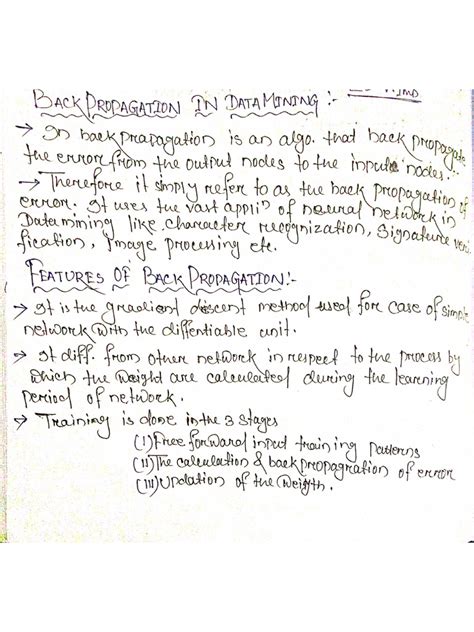 BACK PROPAGATION IN DATA MINING :-
→ In back prapagation is an algo. that back propagate
the error from the output nodes to the input nodes.
→ Therefore it simply refer to as the back propagation of
error. It uses the vast appliⁿ of neural network in
Data mining like character recognization, Signature veri
fication, Image processing etc.
FEATURES OF BACK PROPAGATION:-
→ It is the gradient descent method used for case of simple
network with the diffentiable unit.
→ It diff. from other network in respect to the process by
which the weight are calculated during the learning
period of network.
→ Training is done in the 3 stages
(I) Free forward input training patterns
(II) The calculation & back propagnation of error
(III) Updation of the Weigth.